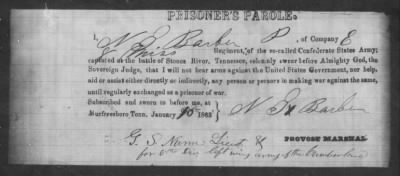 PRISONER'S PAROLE.
I, N. P. Barber P. of Company E
5 Miss Regiment, of the so-called Confederate States Army;
captured at the battle of Stones River, Tennessee, solemnly swear before Almighty God, the
Sovereign Judge, that I will not bear arms against the United States Government, nor help,
aid or assist either directly or indirectly, any person or persons in making war against the same,
until regularly exchanged as a prisoner of war.
Subscribed and sworn to before me, at
Murfreesboro Tenn. January 1863 N Barber
G. S. Lieut & PROVOST MARSHAL
for Div left wing army of the Cumberland